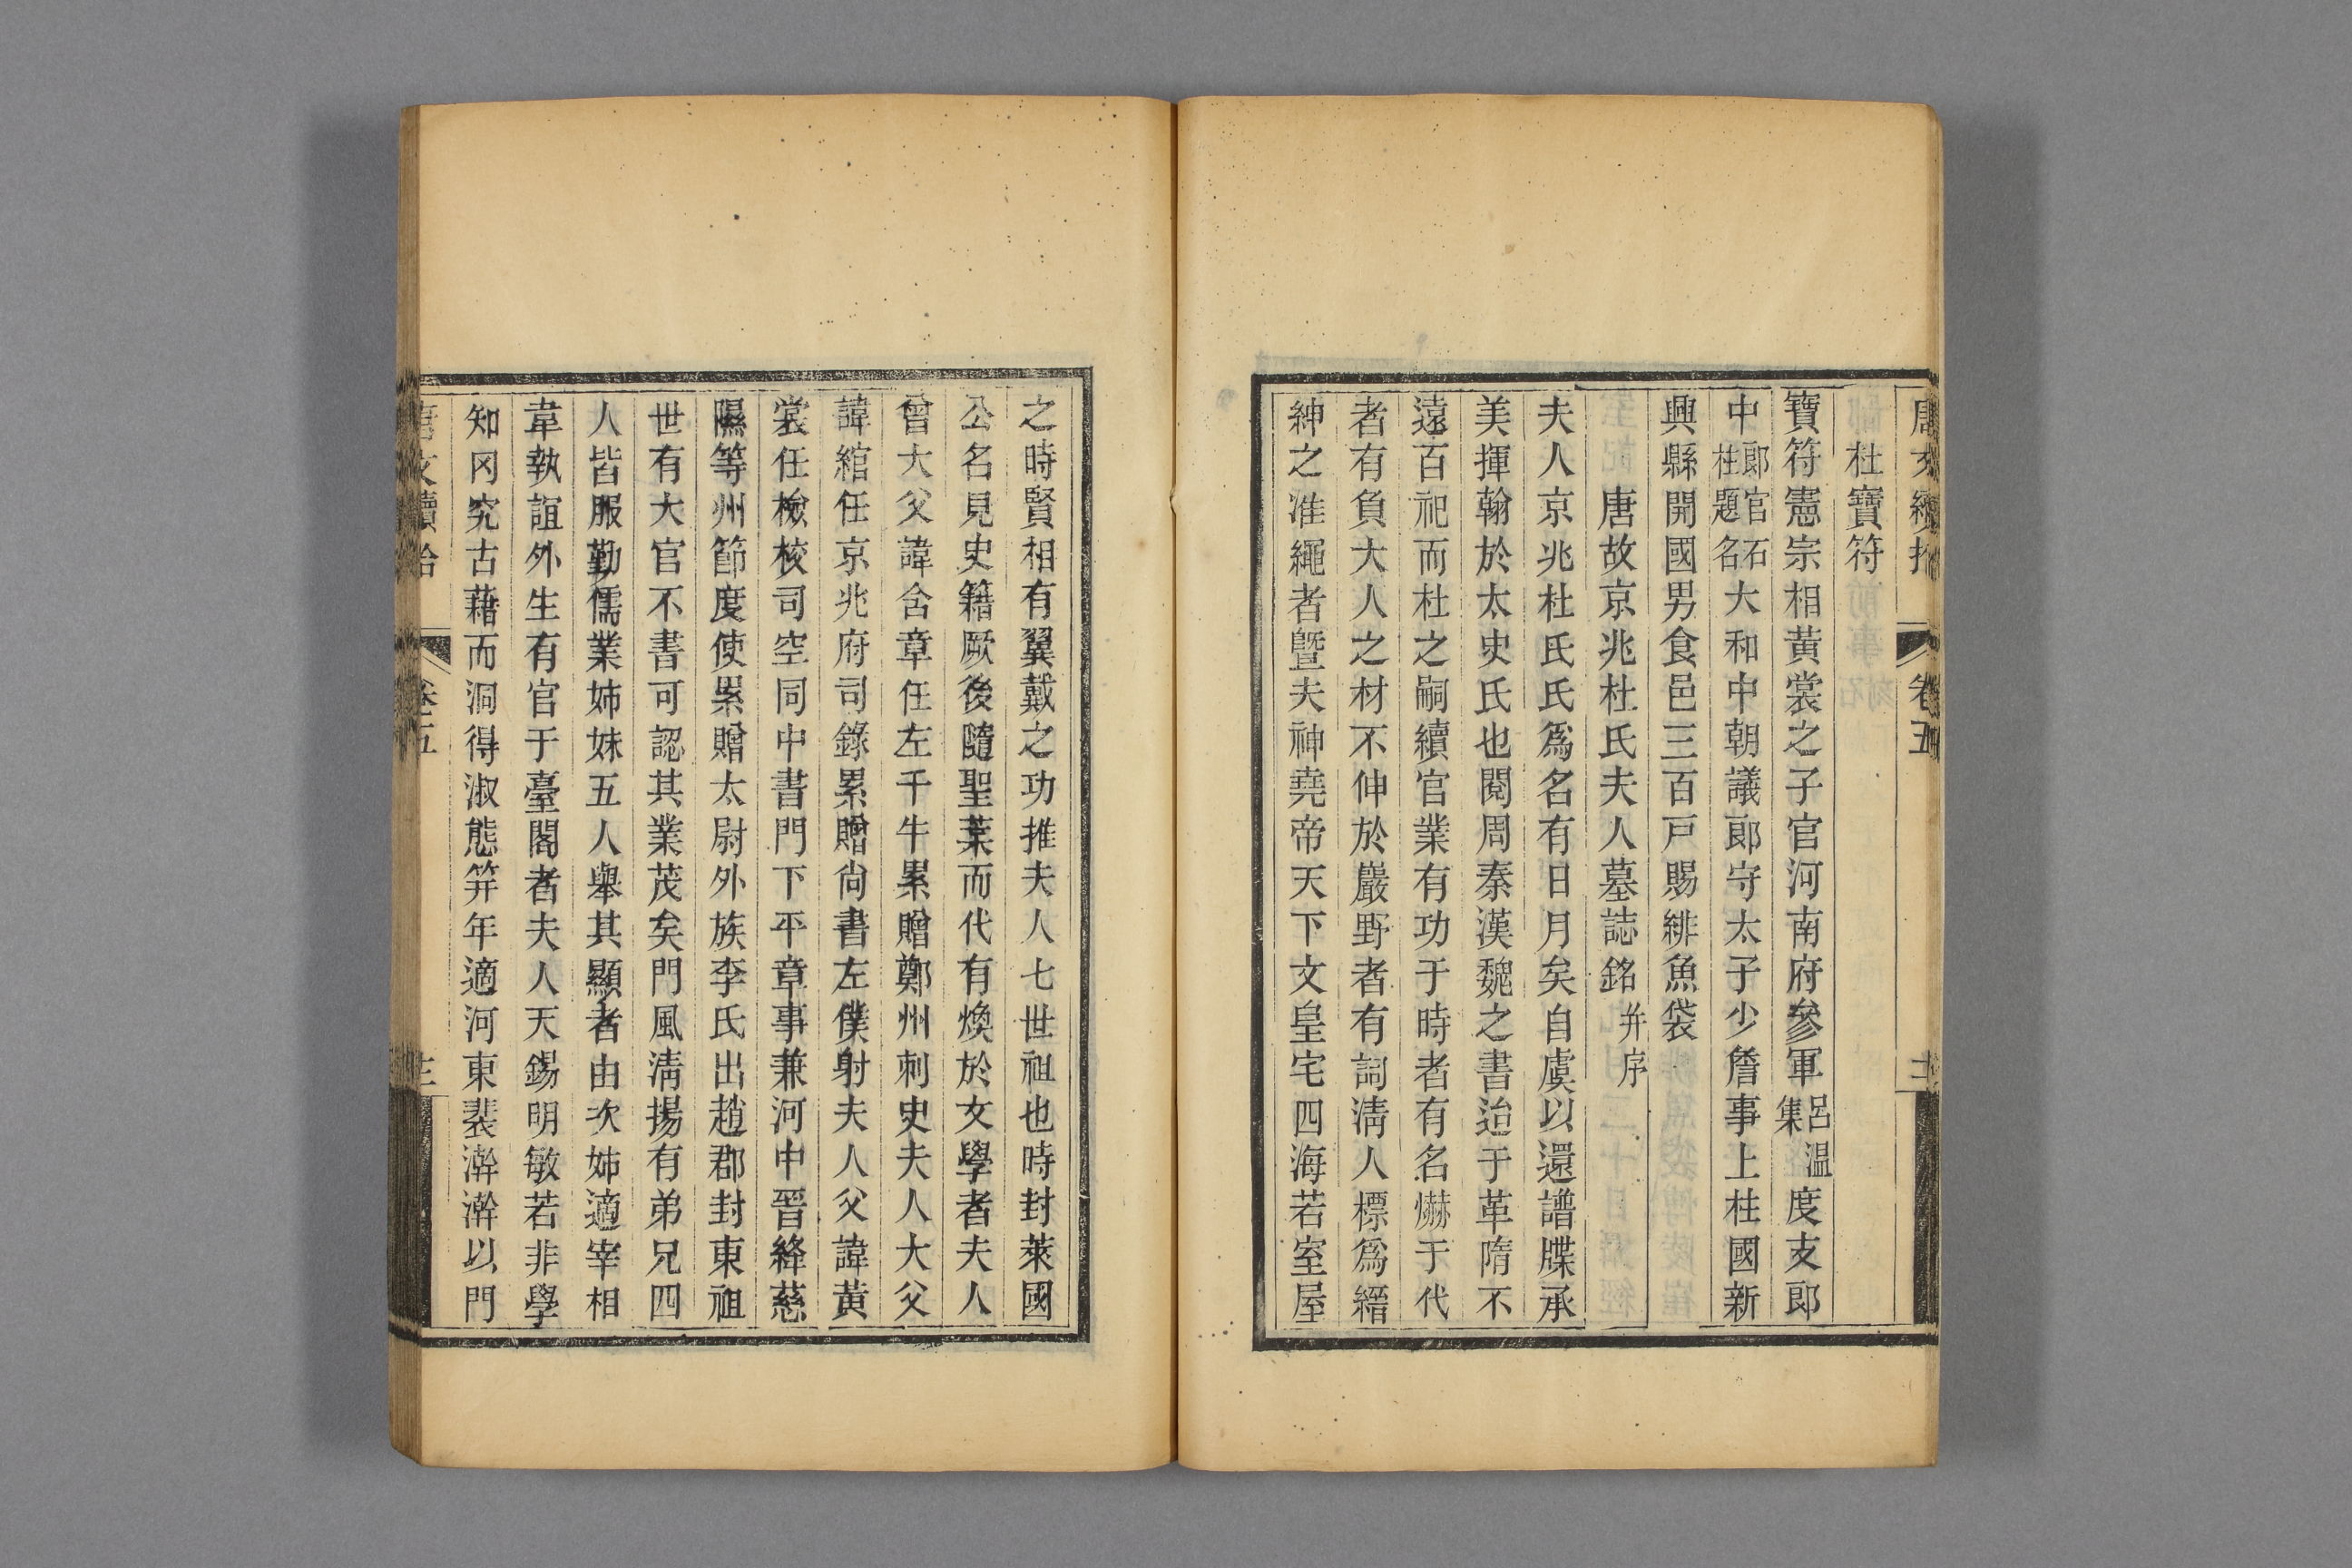 唐文續拾 卷五
杜寶符
寶符憲宗相黃裳之子官河南府參軍呂溫集度支郎
中郎官石柱題名大和中朝議郎守太子少詹事上柱國新
興縣開國男食邑三百戸賜緋魚袋
唐故京兆杜氏夫人墓誌銘并序
夫人京兆杜氏氏爲名有日月矣自虞以還譜牒承
美揮翰於太史氏也閱周秦漢魏之書迨于革隋不
遠百祀而杜之嗣續官業有功于時者有名爀于代
者有負大人之材不伸於嚴野者有詞淸人標爲縉
紳之准繩者曁夫神堯帝天下文皇宅四海若室屋
之時賢相有翼戴之功推夫人七世祖也時封萊國
公名見史籍厥後隨聖葉而代有煥於文學者夫人
曾大父諱含章任左千牛累贈鄭州刺史夫人大父
諱綰任京兆府司錄累贈尙書左僕射夫人父諱黃
裳任檢校司空同中書門下平章事兼河中晉絳慈
隰等州節度使累贈太尉外族李氏出趙郡封東祖
世有大官不書可認其業茂矣門風淸揚有弟兄四
人皆服勤儒業姉妹五人舉其顯者由次姉適宰相
韋執誼外生有官于臺閣者夫人天錫明敏若非學
知罔究古藉而洞得淑態筓年適河東裴澣澣以門
唐文續拾 卷五